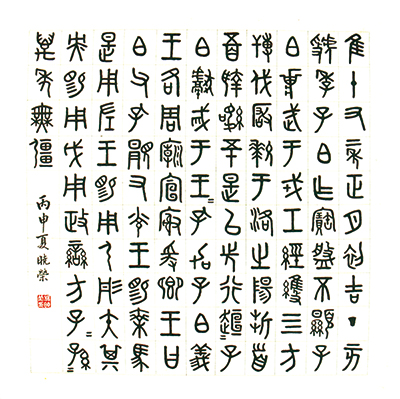 隹十又二年正月初吉丁亥
虢季子白乍寶盤不顯子
白壯武于戎工經維四方
搏伐玁狁于洛之陽折首
五百執訊五十是以先行趄=子
白獻馘于王=孔加子白義
王各周廟宣榭爰鄉王曰
白父孔顯又光王易乘馬
是用左王易用弓彤矢其
央易用戉用政蠻方子=孫=
萬年無疆
丙申夏曉榮